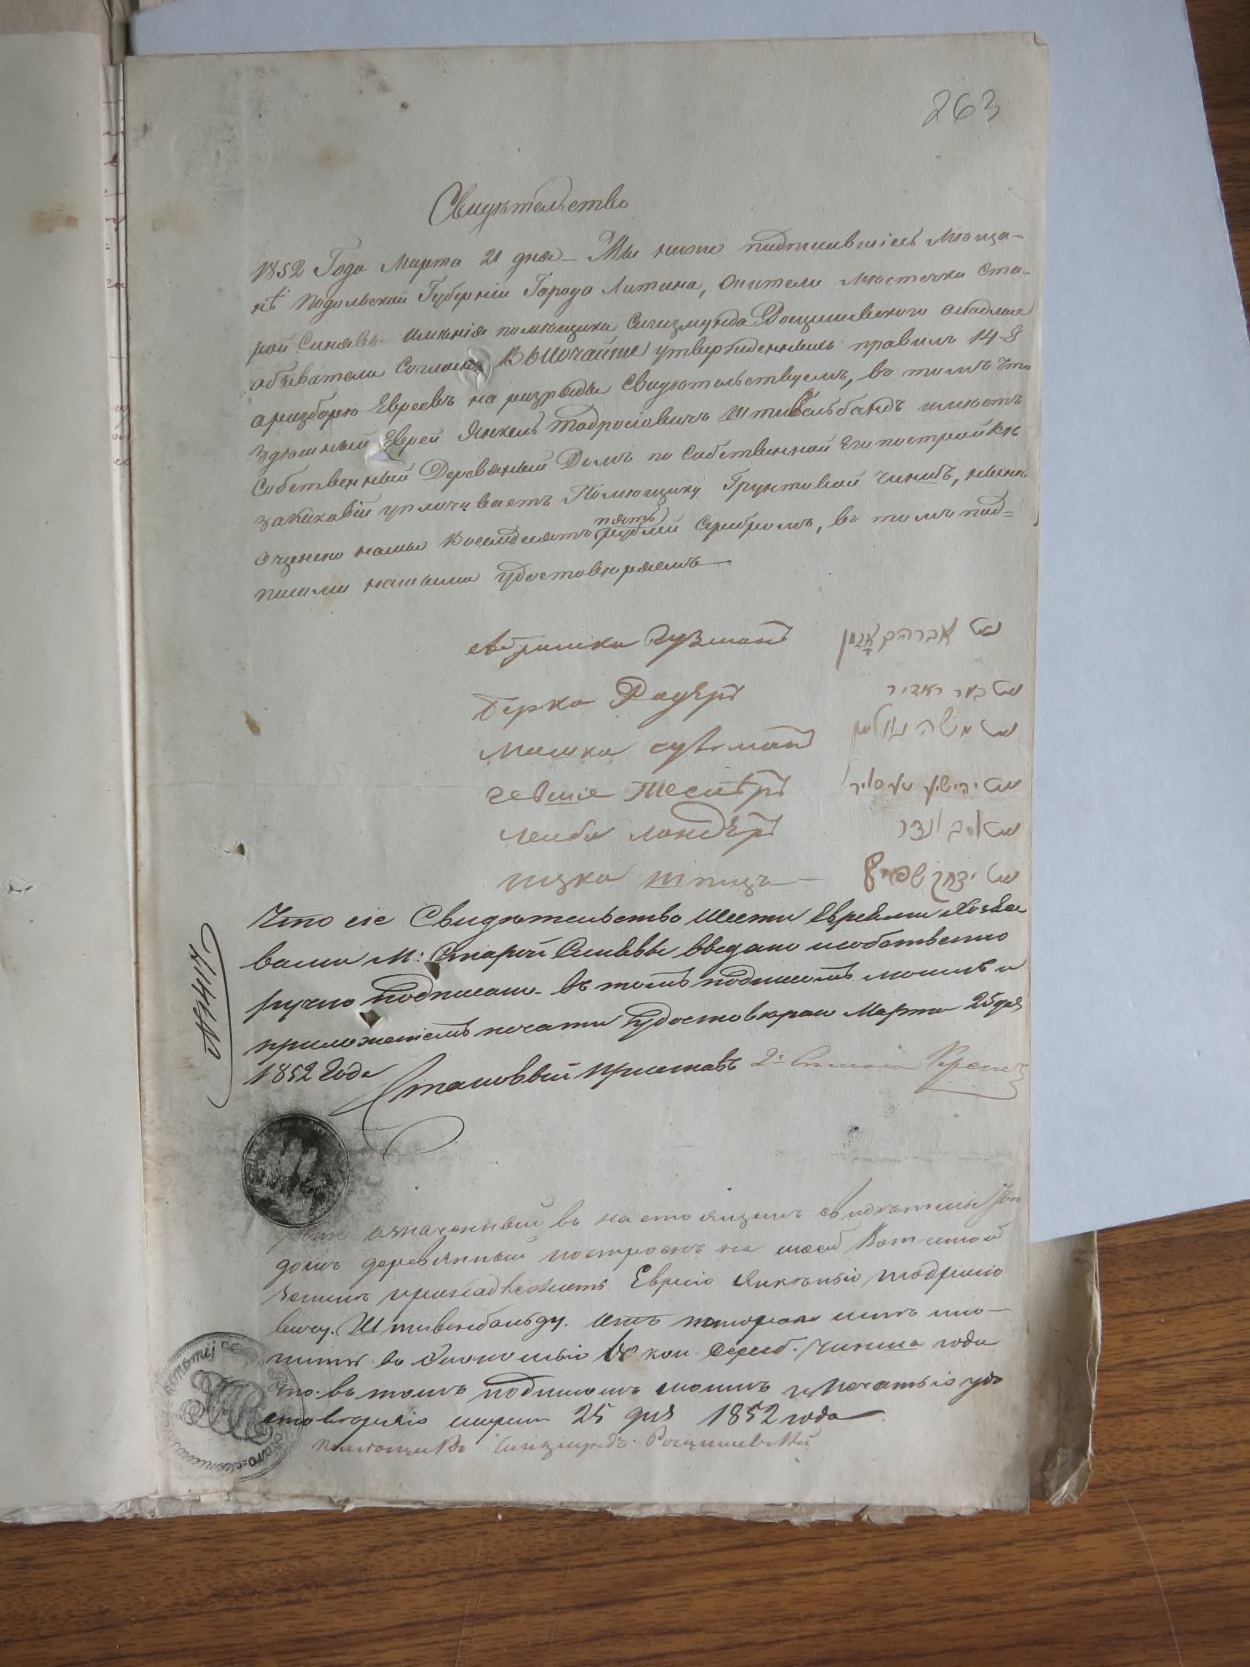 263
Свидѣтельство
1852 Года Марта 21 дня — Мы ниже подписавшіесь Мѣща-
нѣ Подольской Губерніи Города Литина, жители мѣстечка Ста-
рой Синявы имѣнія помѣщика Сигизмунда Росцишевского
обыватели Согласно Высочайше утвержденныхъ правилъ 14 §
о разборѣ Евреевъ на разряды Свидѣтельствуемъ, въ томъ что
здѣшный Еврей Янкель Тодросіовичъ Штивельбандъ имѣетъ
Собственный Деревяный Домъ по Собственной Его постройки
за каковій уплочиваетъ Помѣщику Грунтовой чиншъ,
оцѣнено нами Восемдесятъ пять рублей Серебромъ, въ томъ под-
писями нашыми удостовѣряемъ —
Гузманъ אברהם
Берко Радеръ בער ראדיר
Мошко משה
Тесперъ
Лейба Ландеръ
Ицко Шпицъ — יצחק שפיץ
Что сіе Свидѣтельство шести Евреями Хозяе-
вами М: Старой Синявы выдано исобственно
ручно подписано. въ томъ подписомъ моимъ и
приложеніемъ печати удостовѣраю Марта 25 дня
1852 Года
Становый Приставъ 2:
№ 2414
означенный въ настоящемъ свидѣтельст
домъ деревянный построенъ на моей Вотчиной
земли принадлежитъ Еврею Янкелю Тодрисіо
вичу. Штивенбандту. имъ
въ Экономію коп. сереб. Чинша года
что. въ томъ подписомъ моимъ и печатью удо
стовѣряю марта 25 дня 1852 года
помѣщикъ Сигизмундъ Росцишевскій